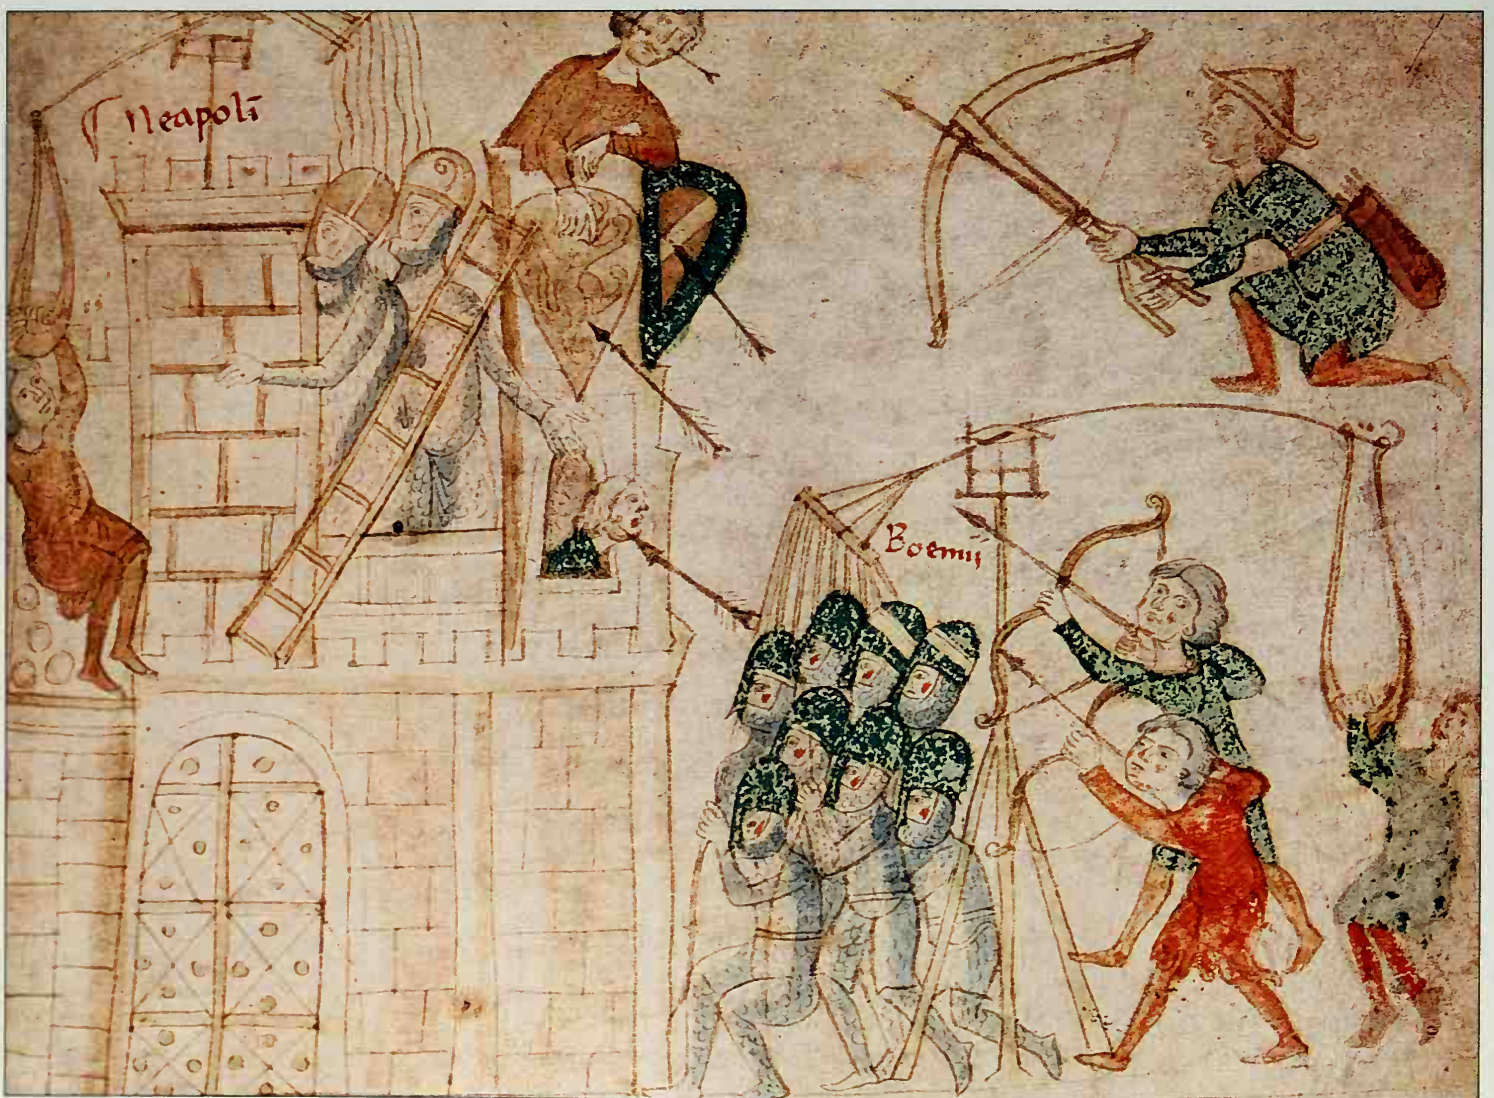 Neapolī
Boemij